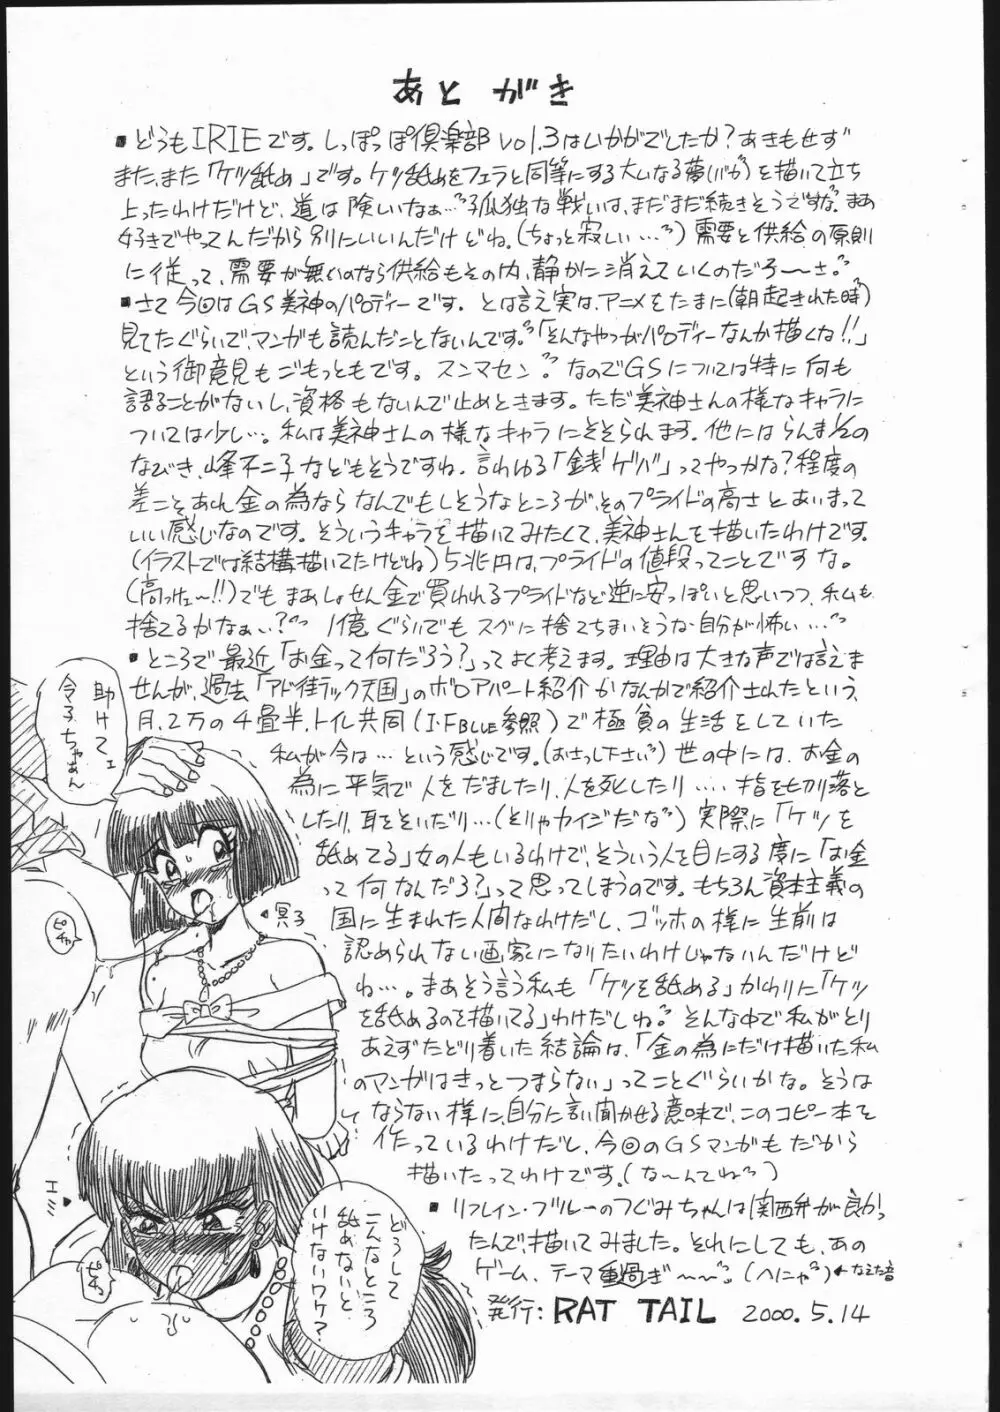 あとがき
▪どうもIRIEです。しっぽっぽ倶楽部vol.3はいかがでしたか?あきもせず
また、また「ケツ舐め」です。ケツ舐めをフェラと同等にする大いなる夢(バカ)を描いて立ち
上ったわけだけど、道は険しいなぁ…孤独な戦いは、まだまだ続きそうですな。まあ
好きでやってんだから別にいいんだけどね。(ちょっと寂しい…)需要と供給の原則
に従って、需要が無いのなら供給もその内、静かに消えていくのだろ〜さ。
▪さて今回はGS美神のパロディーです。とは言え実は、アニメをたまに(朝起きれた時)
見てたぐらいで、マンガも読んだことないんです。「そんなやつがパロディーなんか描くな!!」
という御意見もごもっともです。スンマセン。なのでGSについては特に何も
語ることがないし、資格もないんで止めときます。ただ美神さんの様なキャラに
ついては少し…。私は美神さんの様なキャラにそそられます。他にはらんま½の
なびき、峰不二子などもそうですね。言わゆる「銭ゲバ」ってやつかな?程度の
差こそあれ金の為ならなんでもしそうなところが、そのプライドの高さとあいまって
いい感じなのです。そういうキャラを描いてみたくて、美神さんを描いたわけです。
(イラストでは結構描いてたけどね)5兆円は、プライドの値段ってことですな。
(高っけェ〜!!)でもまあしょせん金で買われるプライドなど逆に安っぽいと思いつつ、私も
捨てるかなぁ…?1億ぐらいでもスグに捨てちまいそうな自分が怖い…
▪ところで最近「お金って何だろう?」ってよく考えます。理由は大きな声では言えま
せんが、過去「アド街ック天国」のボロアパート紹介かなんかで紹介されたという、
月、2万の4畳半、トイレ共同(I・F BLUE参照)で極貧の生活をしていた
私が今は…という感じです。(おさっし下さい)世の中には、お金の
為に平気で人をだましたり、人を死したり…指を切り落と
したり、耳をそいだり…(とりゃカイジだな)実際に「ケツを
舐めてる」女の人もいるわけで、そういう人を目にする度に「お金
って何なんだろ?」って思ってしまうのです。もちろん資本主義の
国に生まれた人間なわけだし、ゴッホの様に生前は
認められない画家になりたいわけじゃないんだけど
ね…。まあそう言う私も「ケツを舐める」かわりに「ケツ
を舐めるのを描いてる」わけだしね。そんな中で私がとり
あえずたどり着いた結論は、「金の為にだけ描いた私
のマンガはきっとつまらない」ってことぐらいかな。そうは
ならない様に、自分に言い聞かせる意味で、このコピー本を
作っているわけだし、今回のGSマンガもだから
描いたってわけです。(な〜んてね)
▪リフレイン・ブルーのつぐみちゃんは関西弁が良かっ
たんで、描いてみました。それにしても、あの
ゲーム、テーマ重過ぎ〜〜。(へにゃ)←なえた音
発行:RAT TAIL 2000.5.14
助けてェ
令子ちゃあん
冥子
ピチャ
エミ
どうして
こんなところ
舐めないと
いけないワケ?